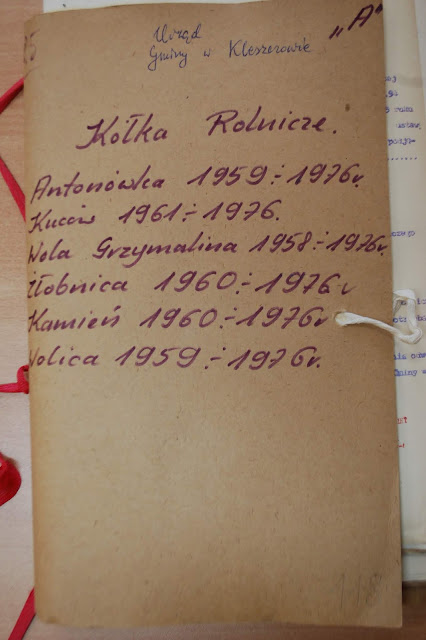 Urząd
Gminy w Kleszczowie
„A"
Kółka Rolnicze.
Antonówka 1959÷1976r.
Kuców 1961÷1976.
Wola Grzymalina 1958÷1976r.
Żłobnica 1960÷1976r
Kamień 1960÷1976r
Wolica 1959÷1976r.